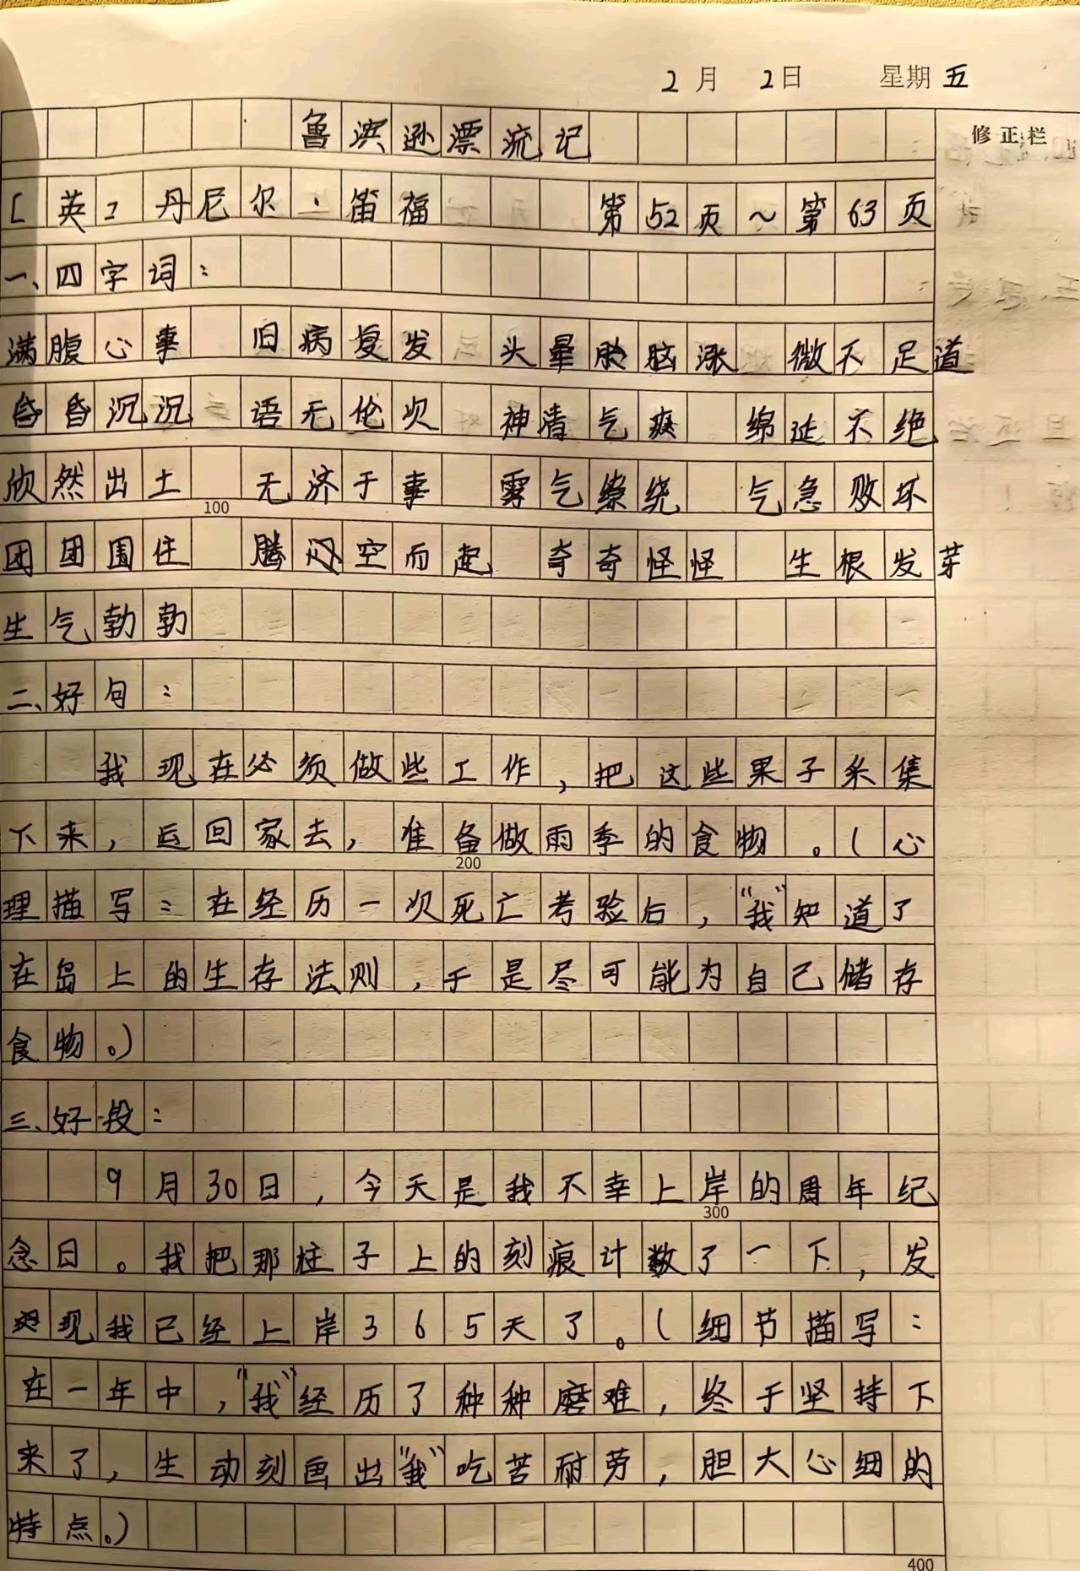 2月 2日 星期五
修正栏
鲁滨逊漂流记
[英]丹尼尔·笛福 第52页~第63页
一、四字词:
满腹心事 旧病复发 头晕脑涨 微不足道
昏昏沉沉 语无伦次 神清气爽 绵延不绝
欣然出土 无济于事 雾气缭绕 气急败坏
100
团团围住 腾空而起 奇奇怪怪 生根发芽
生气勃勃
二、好句:
我现在必须做些工作,把这些果子采集
下来,运回家去,准备做雨季的食物。(心
200
理描写:在经历一次死亡考验后,“我”知道了
在岛上的生存法则,于是尽可能为自己储存
食物。)
三、好段:
9月30日,今天是我不幸上岸的周年纪
300
念日。我把那柱子上的刻痕计数了一下,发
现我已经上岸365天了。(细节描写:
在一年中,“我”经历了种种磨难,终于坚持下
来了,生动刻画出“我”吃苦耐劳,胆大心细的
特点。)
400